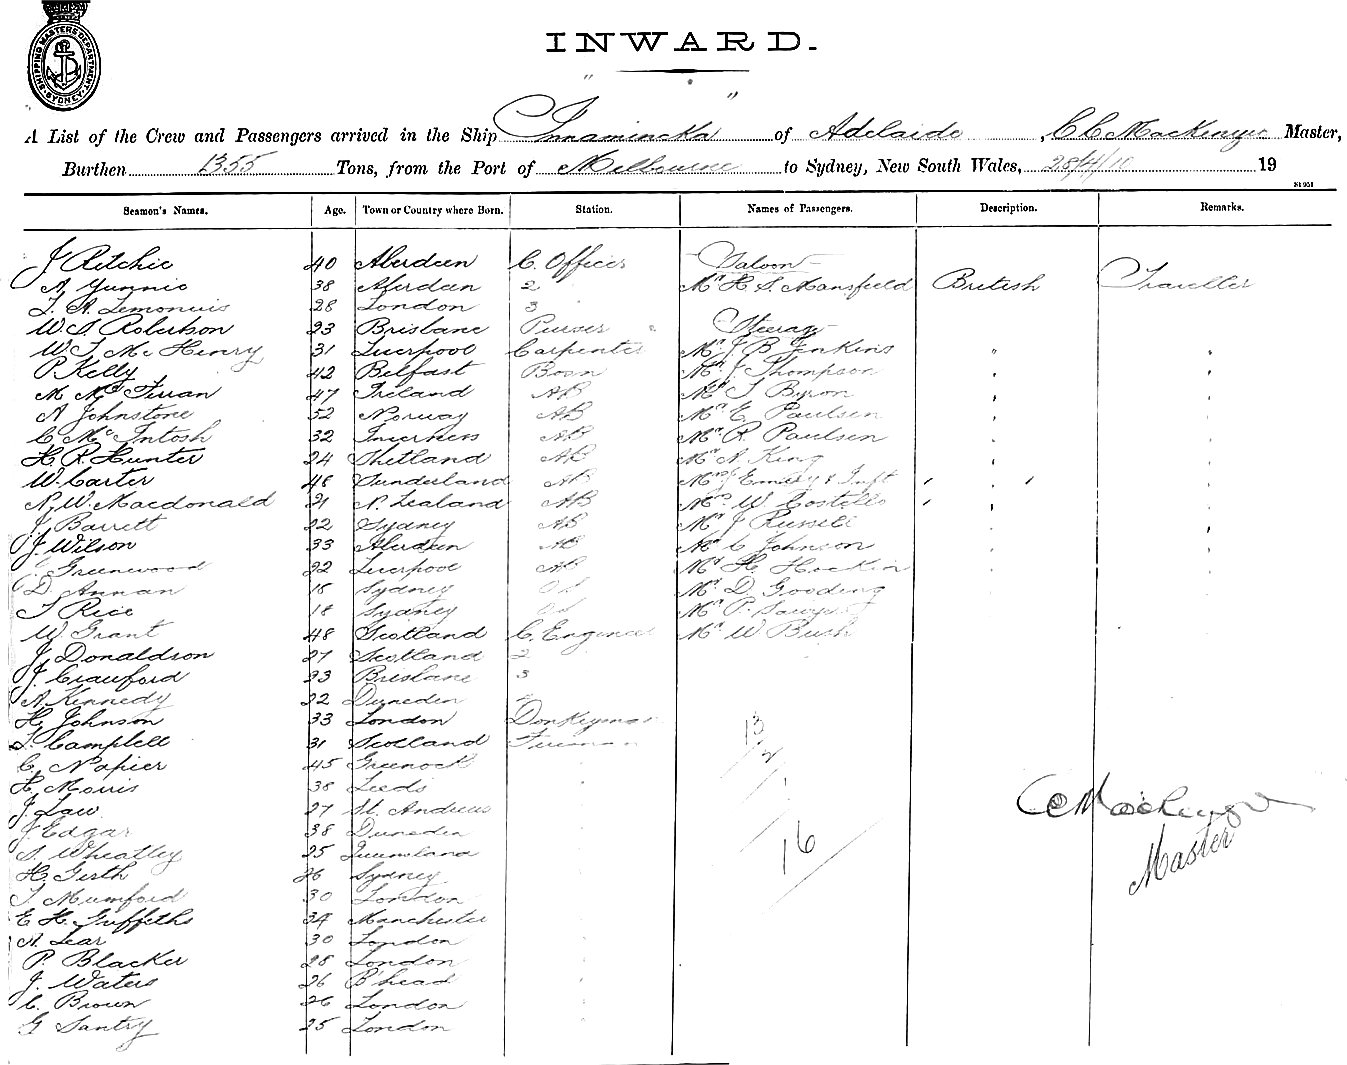 SHIPPING MASTERS DEPARTMENT SYDNEY
INWARD.
A List of the Crew and Passengers arrived in the Ship Innamincka of Adelaide, C C Mackenzie Master,
Burthen 1355 Tons, from the Port of Melbourne to Sydney, New South Wales, 28/4/10 19
Seamen's Names. Age. Town or Country where Born. Station. Names of Passengers. Description. Remarks.
J Ritchie 40 Aberdeen C. Officer Saloon
A 38 Aberdeen 2 Mr H S Mansfield British Traveller
28 London 3
W S Robertson 23 Brisbane Purser Steerage
W J McHenry 31 Liverpool Carpenter Mr J B Jenkins "
P Kelly 42 Belfast Bosn Mr J Thompson "
M 47 Ireland AB Mr T Byron "
A Johnstone 52 Norway AB Mr E Paulsen "
C McIntosh 32 Inverness AB Mr R Paulsen "
H R Hunter 24 Shetland AB Mr A King "
W Carter 48 Sunderland AB Emery & Inft " " "
N W Macdonald 21 N. Zealand AB W Costello " "
J Barrett 22 Sydney AB Mr J Russell
J Wilson 33 Aberdeen AB Mr C Johnson
Greenwood 22 Liverpool AB Mr H Hockin
D Annan 18 Sydney OS Mr D Gooding
T Rice 18 Sydney OS Mr P.
W Grant 48 Scotland C. Engineer Mr W Bush
J Donaldson 27 Scotland 2
J Crawford 23 Brisbane 3
A Kennedy 22 Dunedin
H Johnson 33 London Donkeyman
Campbell 31 Scotland Fireman
C Napier 45 Greenock
H Morris 38 Leeds
J Law 27 St. Andrews
J Edgar 38 Dunedin
S Wheatley 25 Queensland
H Girth 26 Sydney
T Mumford 30 London
E H Griffeths 34 Manchester
A Lear 30 London
P. Blacker 28 London
J. Waters 26 B'head
C. Brown 26 London
G Santry 25 London
13
2
1
16
C C Mackenzie
Master